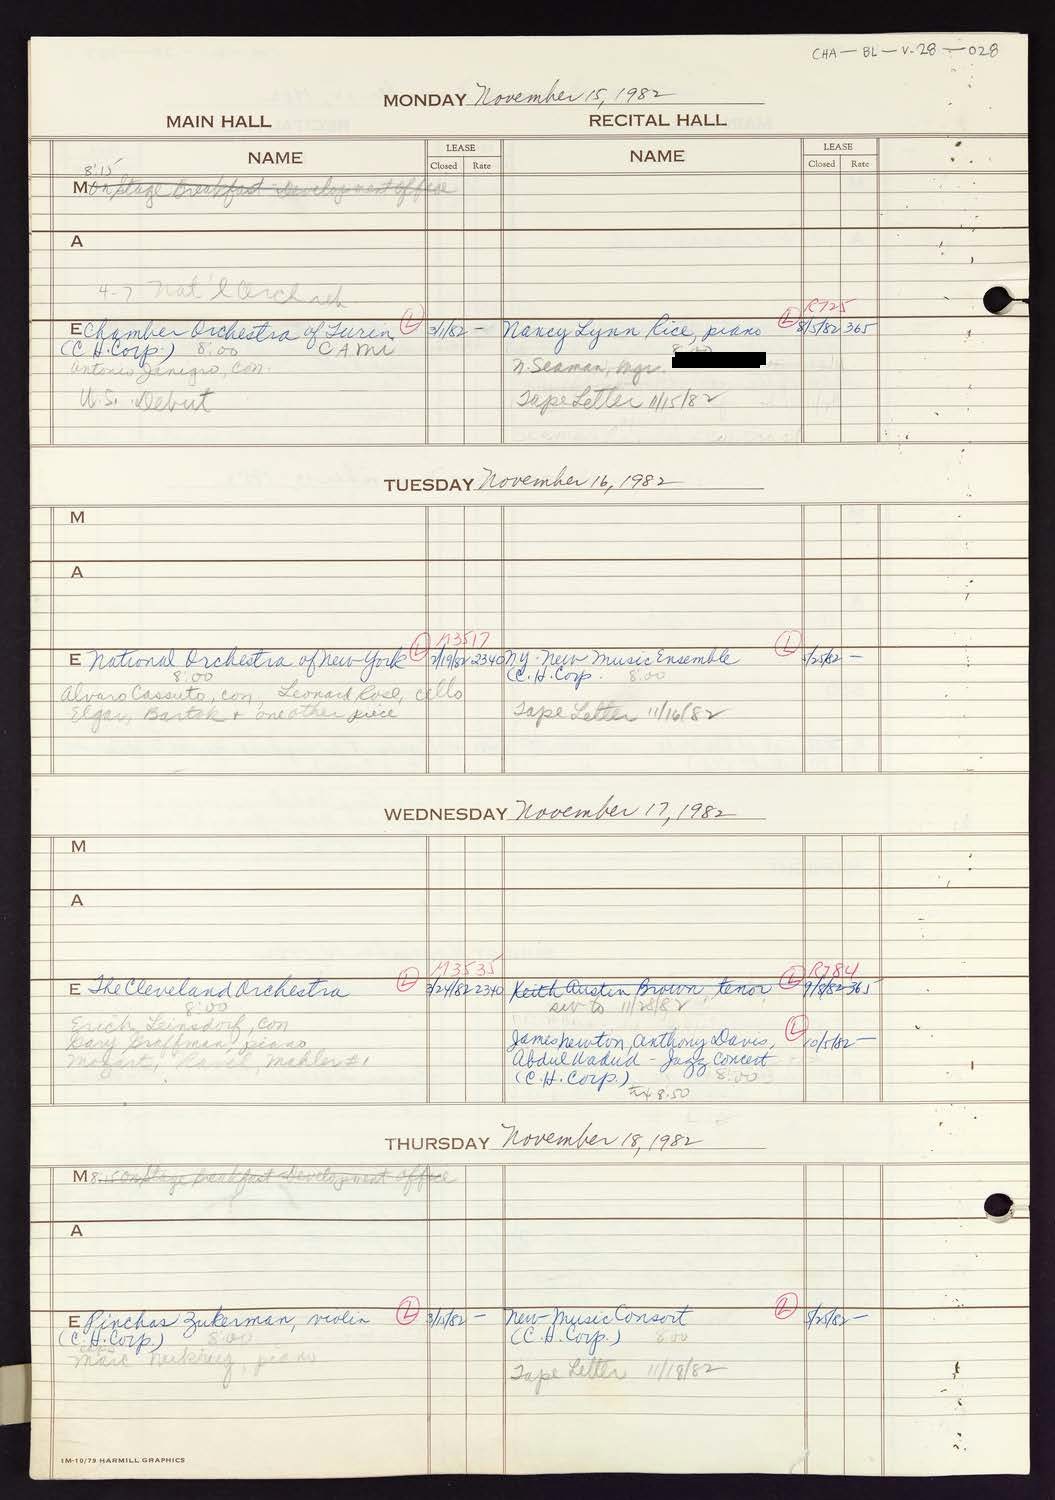 CHA - BL - V-28 - 028
MONDAY November 15, 1982
MAIN HALL
RECITAL HALL
NAME
LEASE
Closed Rate
NAME
LEASE
Closed Rate
8:15
M On Stage Breakfast - Development Office
A
4-7 Nat'l Orch reh
R725
E Chamber Orchestra of Turin L 3/1/82 - Nancy Lynn Rice, piano L 8/5/82 365
(C.H. Corp.) 8:00 CAMI 8:00
Antonio Janigro, con. N. Seaman, Mgr.
U.S. Debut Tape Letter 11/15/82
TUESDAY November 16, 1982
M
A
M3517
E National Orchestra of New York L 2/19/82 2340 NY. New Music Ensemble L 5/25/82 -
8:00 (C.H. Corp. 8:00
Alvaro Cassuto, con, Leonard Rose, cello
Elgar, Bartok + one other piece Tape Letter 11/16/82
WEDNESDAY November 17, 1982
M
A
M3535 R784
E The Cleveland Orchestra L 3/24/82 2340 Keith Austin Brown, tenor L 9/8/82 365
8:00 to 11/28/82
Erich Leinsdorf, con
Gary Graffman, piano James Newton, Anthony Davis, L 10/5/82 -
Mozart, Ravel, Mahler #1 Abdul Wadud - Jazz Concert
(C.H. Corp.) 8:00
8.50
THURSDAY November 18, 1982
M 8:15 On Stage Breakfast - Development Office
A
E Pinchas Zukerman, violin L 3/15/82 - New Music Consort L 5/25/82 -
(C.H. Corp.) 8:00 (C.H. Corp.) 8:00
Marc Neikrug, piano
Tape Letter 11/18/82
1M-10/79 HARMILL GRAPHICS